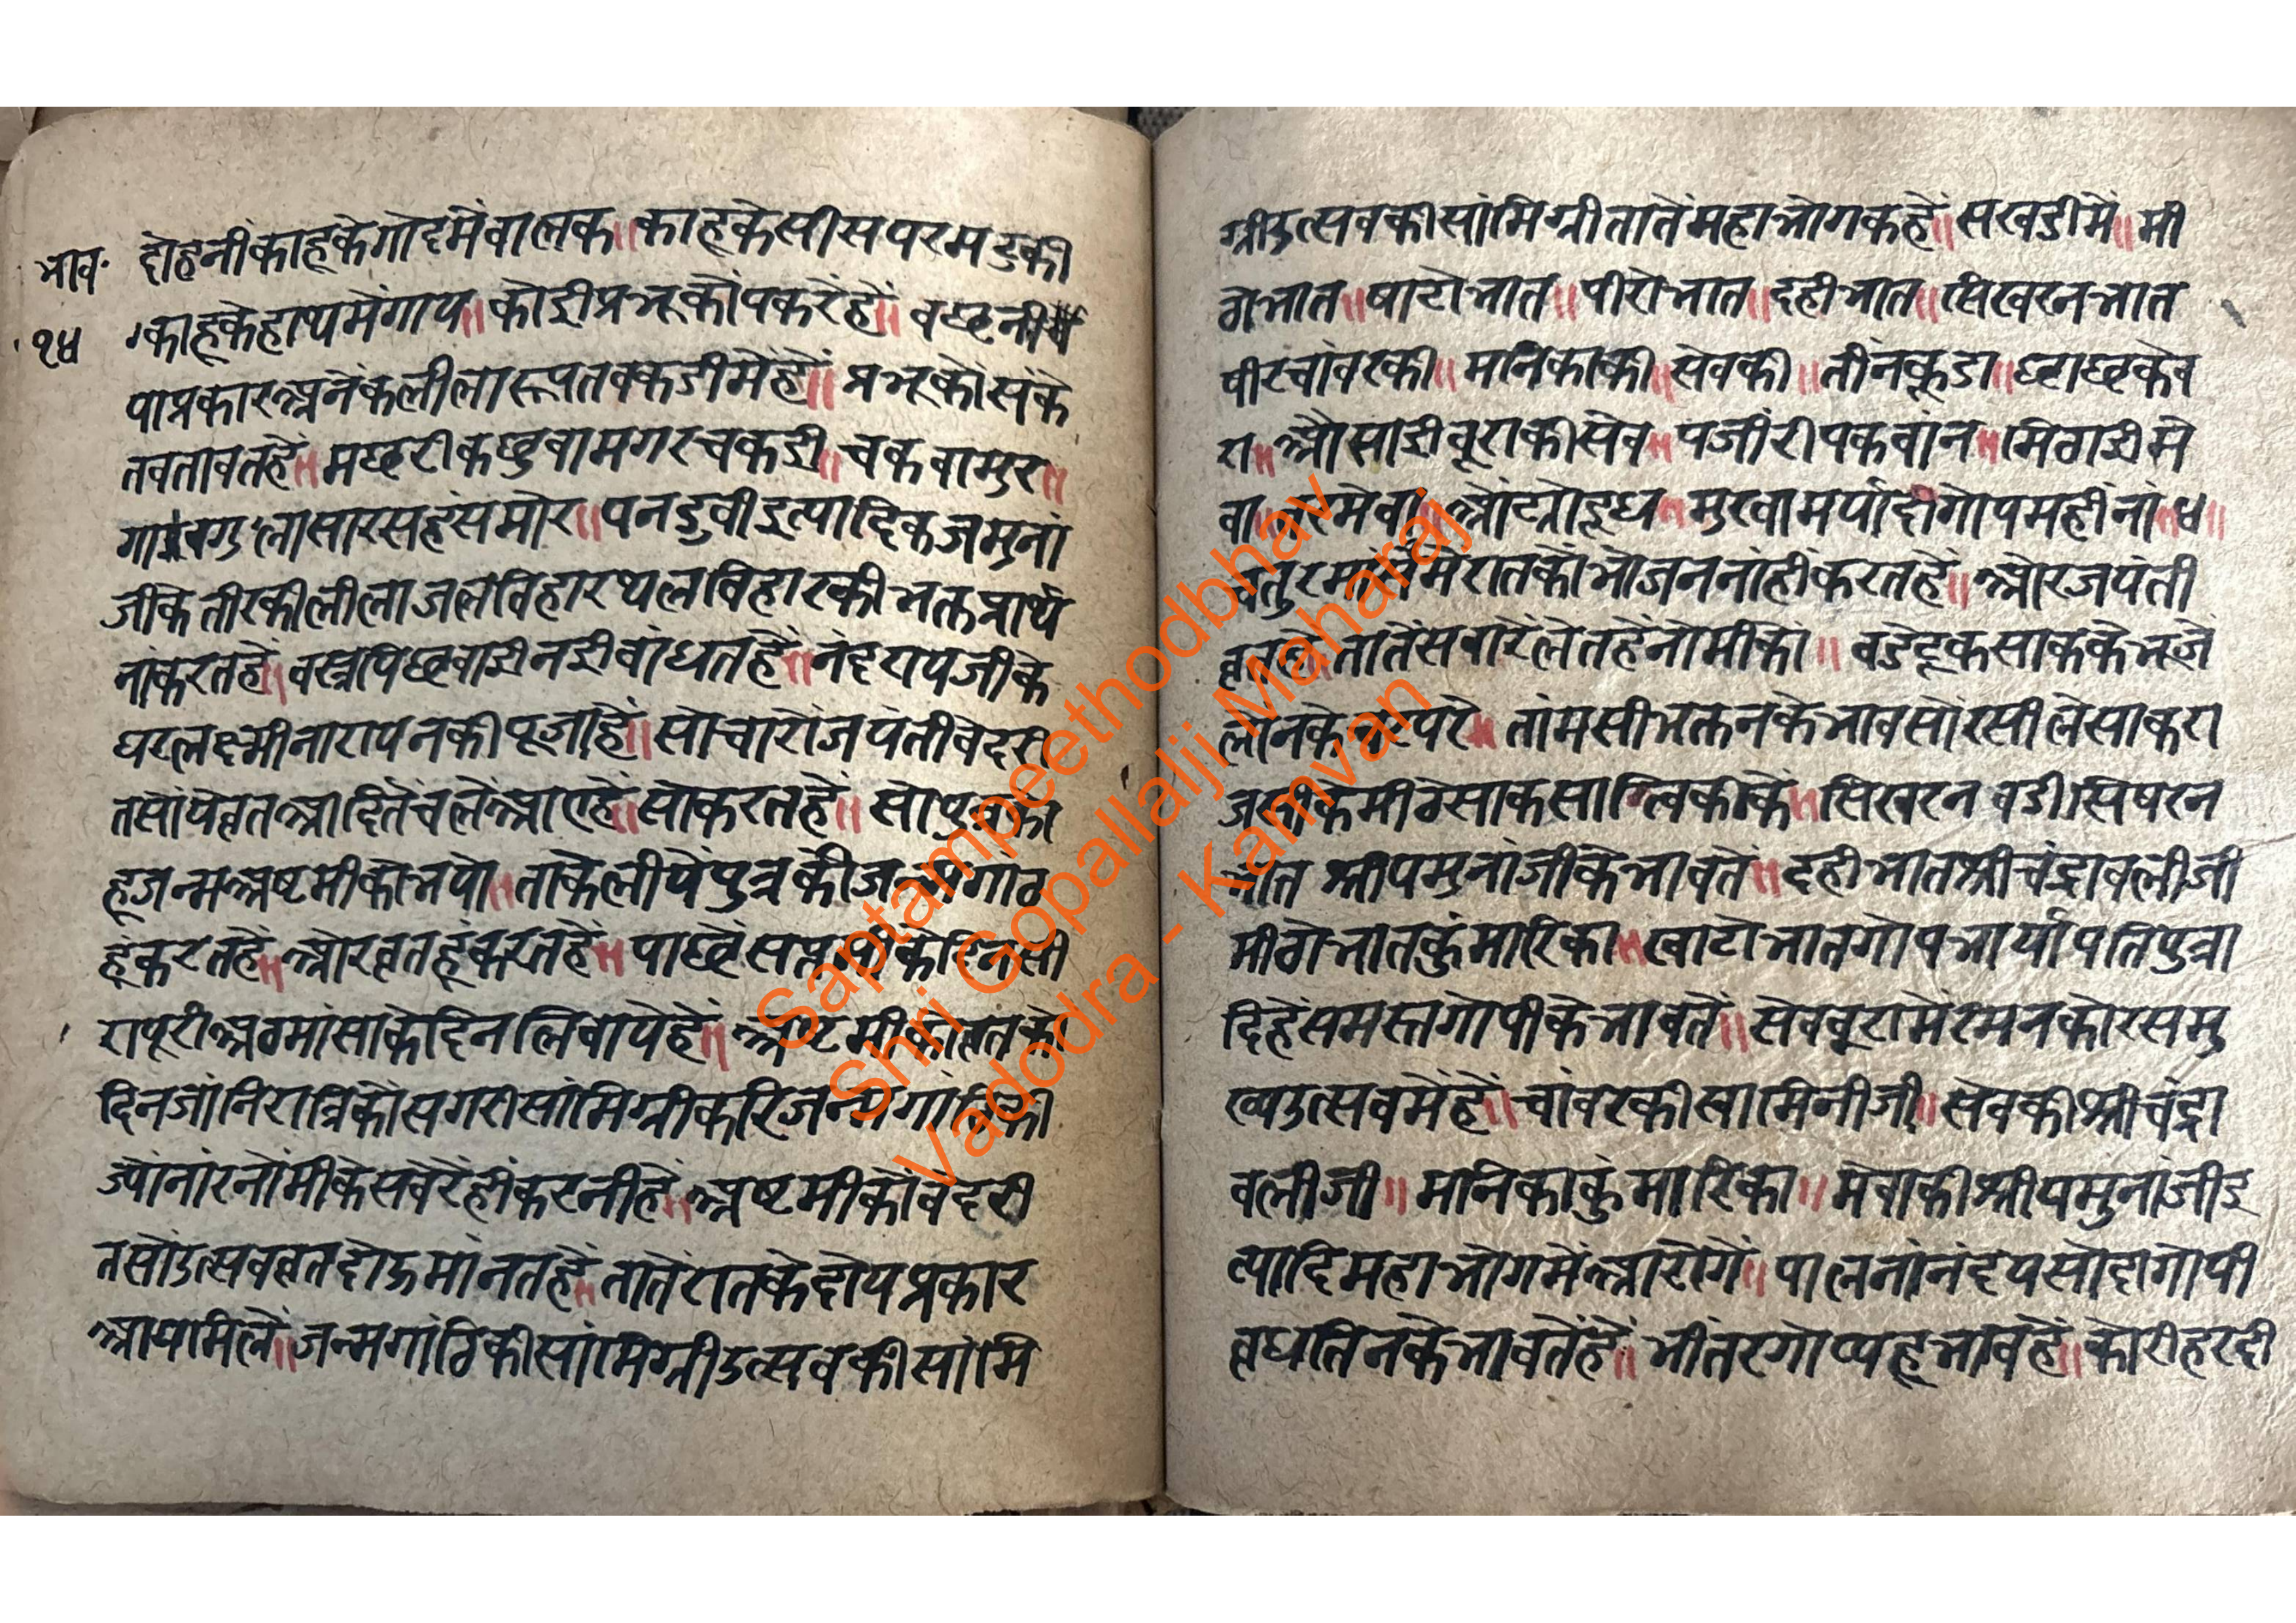 भाव॰
१४
दोहनीकाहूकेगोदमेंबालक॥काहूकेसीसपरमटुकी
काहूकेहाथमेंगाय॥कोईप्रभूकोंपकरेंहें॥वछनी
याप्रकारअनेकलीलारूपतबकडीमेंहें॥प्रभूकोसंके
तबतावतहें॥मछरीकछुवामगरचकई॥चकवामुर॥
गाबगुलासारसहंसमोर॥पनडुवीइत्यादिकजमुनां
जीकेतीरकीलीलाजलविहारथलविहारकीभक्तप्रार्थ
नांकरतहें॥वस्त्रापिछवाईनईबांधतहें॥नंदरायजीके
घरलक्ष्मीनारायनकीपूजाहें॥सोचारोंजयंतीवेदरी
तसोंपेव्रतआदितेंचलेंआएहें॥सोकरतहें॥सोपुत्रको
हूजन्मअष्टमीकोभयो॥ताकेलीयेंपुत्रकीजन्मगांठ
हूंकरतहें॥ओरव्रतहूंकरतहें॥पाछेंसप्तमीकेदिनसी
रापूरीअठमांसाकेदिनलिवायेहें॥अष्टमीकोव्रतको
दिनजांनिरात्रिकोंसगरीसांमिग्रीकरिजन्मगांठिकी
ज्योंनांरनोंमीकेसवेरेंहींकरनीहें॥अष्टमीकोंवेदरी
तसोंउत्सवव्रतदोऊमांनतहें॥तातेंरातकेदोयप्रकार
आयामिलें॥जन्मगांठिकीसांमिग्रीउत्सवकीसांमि
ग्रीउत्सवकीसांमिग्रीतातेंमहाभोगकहें॥सखडीमें॥मी
ठोभात॥षाटोभात॥पीरोभात॥दहीभात॥सिखरनभात
षीरचांवरकी॥मनिकाकी॥सेवकी॥तीनकूडा॥छाछकेव
रा॥औसाईबूराकीसेव॥पजीरीपकवांन॥मिठाईमे
वा॥ओट्योदूध॥मुख्यामर्यादागोपमहींनां४॥
चतुरमासमेंरातकोंभोजननांहींकरतहें॥ओरजयंती
व्रतहेंतातेंसवारेंलेतहेंनोमीकों॥बडेटूकसाककेभूजे
लोनकेचरपरे॥तांमसीभक्तनकेभावसोंरसीलेसाकरा
जसीकेमीठेसाकसात्विकीके॥सिखरनवडीसिषरन
भातश्रीयमुनांजीकेभावतें॥दहीभातश्रीचंद्रावलीजी
मीठोभातकुंमारिका॥खाटोभातगोपभार्यापतिपुत्रा
दिहेंसमस्तगोपीकेभावतें॥सेवबूरामेंरमनकोरसमु
ख्यउत्सवमेंहें॥चांवरकीस्वामिनीजी॥सेवकीश्रीचंद्रा
वलीजी॥मनिकाकुंमारिका॥मेवाकीश्रीयमुनांजीइ
त्यादिमहाभोगमेंआरोगें॥पालनांनंदयसोदागोपी
ग्वालतिनकेभावतेंहें॥भीतरगोप्यहूभावहें॥कोरीहरदी